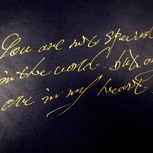 You are not special
in the world. But on
one in my heart.